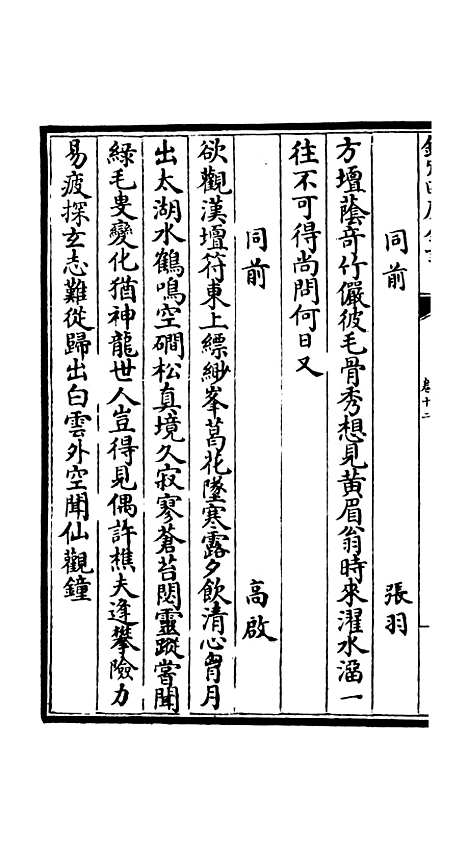 卷十二
同前　張羽
方壇蔭奇竹儼彼毛骨秀想見黃眉翁時來濯水澑一
往不可得尚問何日又
同前　高啟
欲觀漢壇符東上縹緲峯菖花墜寒露夕飲清心胷月
出太湖水鶴鳴空磵松真境久寂寥蒼苔閟靈蹤嘗聞
綠毛叟變化猶神龍世人豈得見偶許樵夫逢攀險力
易疲探玄志難從歸出白雲外空聞仙觀鐘